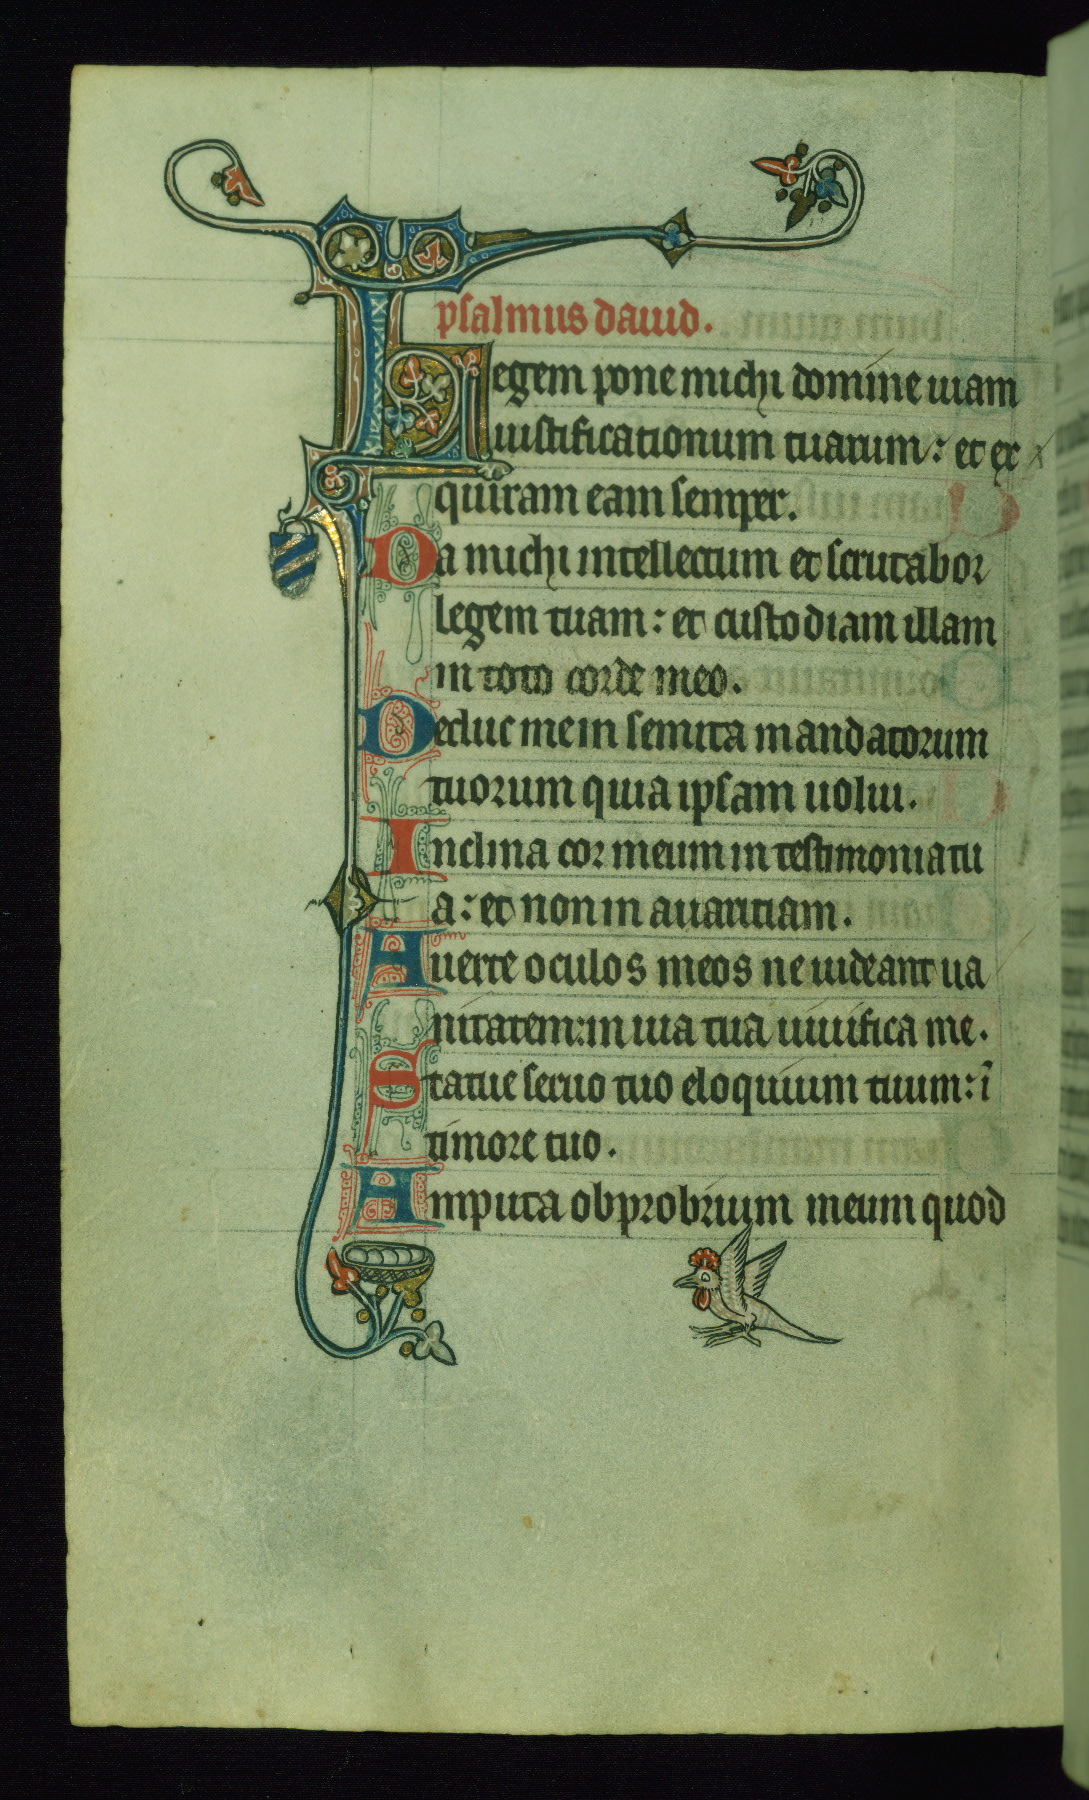 psalmus dauid.
Legem pone michi domine uiam
iustificationum tuarum: et ex
quiram eam semper.
Da michi intellectum et scrutabor
legem tuam: et custodiam illam
in toto corde meo.
Deduc me in semita mandatorum
tuorum quia ipsam uolui.
Inclina cor meum in testimonia tu
a: et non in auaritiam.
Auerte oculos meos ne uideant ua
nitatem: in uia tua uiuifica me.
Statue seruo tuo eloquium tuum: ī
timore tuo.
Amputa obprobrium meum quod